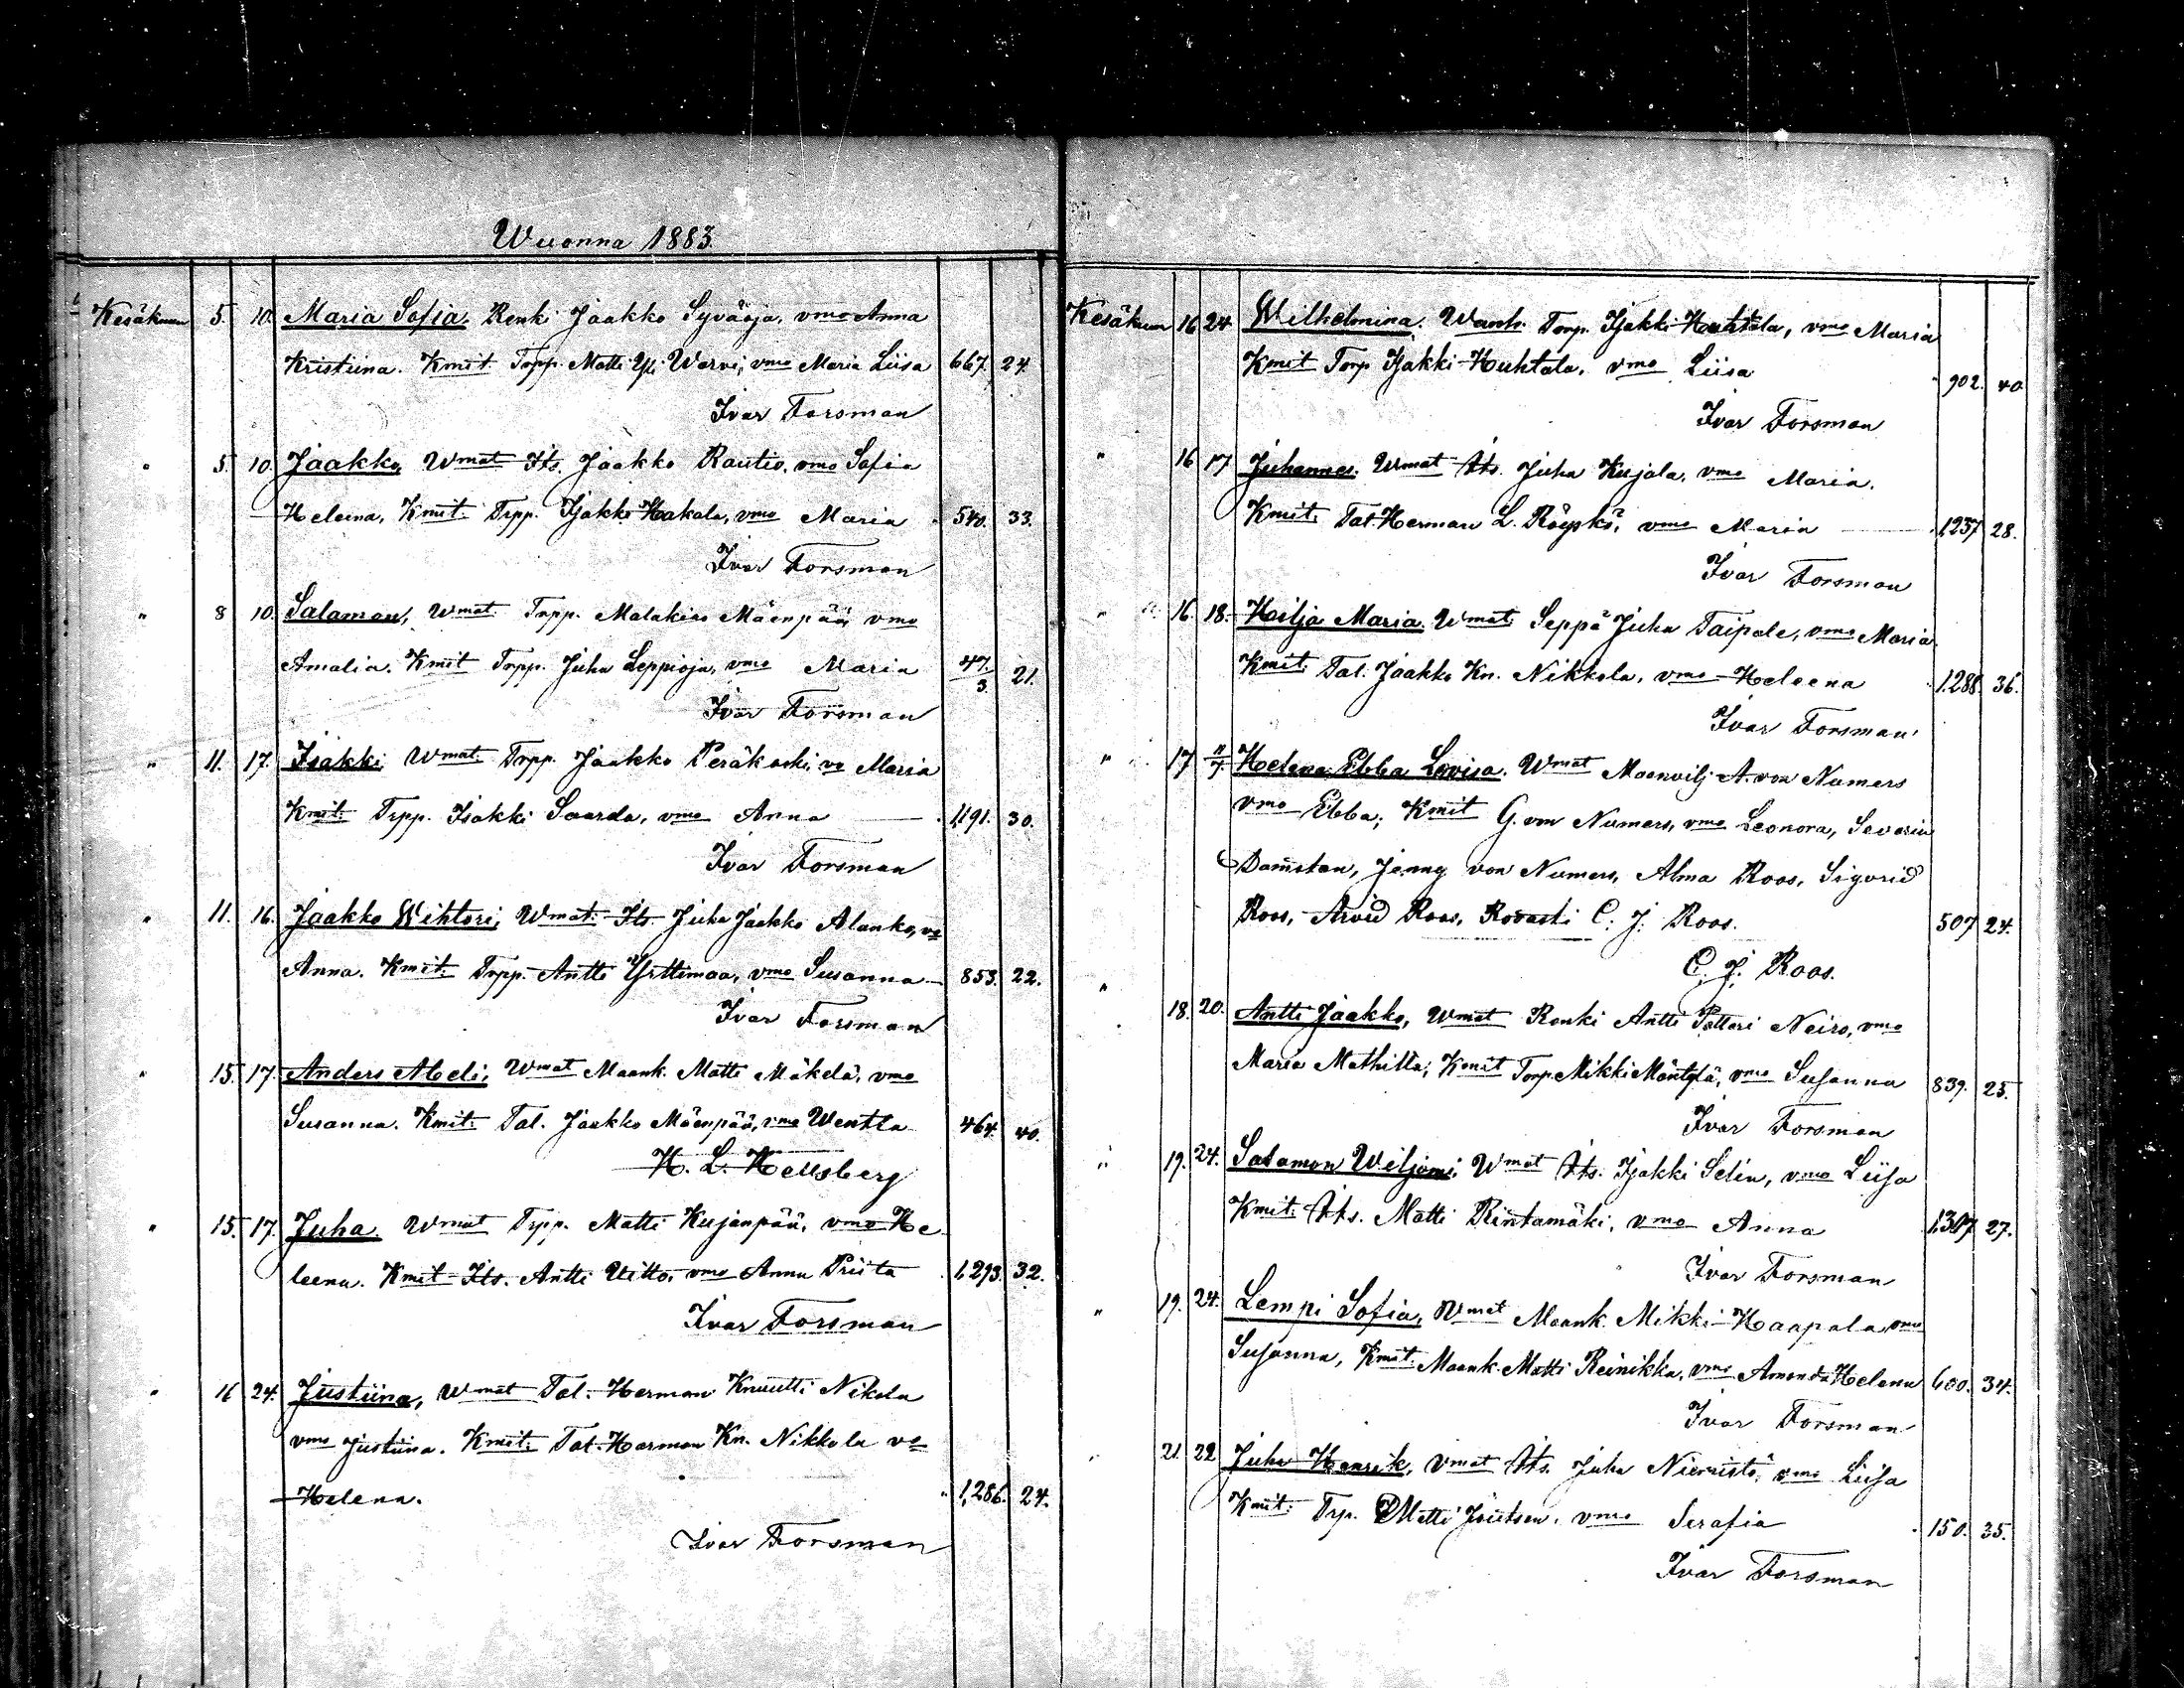 Wuonna 1883.
Kesäkuun 5. 10. Maria Sofia. Renki Jaakko Syväoja, vmo Anna
Kristiina. Kmit. Torpp. Matti Yli Warvi, vmo Maria Liisa 667. 24.
Ivar Forsman
" 5. 10. Jaakko, Wmat Its. Jaakko Rautio, vmo Sofia
Heleena, Kmit. Trpp. Isakki Hakala, vmo Maria 540. 33.
Ivar Forsman
" 8 10. Salamon, Wmat. Trpp. Malakias Mäenpää, vmo
Amalia. Kmit Torpp. Juha Leppioja, vmo Maria 47./3. 21.
Ivar Forsman
" 11. 17. Isakki Wmat. Trpp. Jaakko Peräkoski, vo Maria
Kmit. Trpp. Isakki Saarda, vmo Anna 1,191. 30.
Ivar Forsman
" 11. 16. Jaakko Wihtori, Wmat. Its. Juha Jaakko Alanko, vo
Anna. Kmit. Trpp. Antti Yrttimaa, vmo Susanna 853. 22.
Ivar Forsman
" 15. 17. Anders Abeli, Wmat Maank. Matti Mäkelä, vmo
Susanna. Kmit. Tal. Jaakko Mäenpää, vmo Wentla 464. 40.
H. L. Hellsberg
" 15. 17. Juha. Wmat Trpp. Matti Kujanpää, vmo He
leena. Kmit Its. Antti Uitto, vmo Anna Priita 1,293. 32.
Ivar Forsman
" 16 24. Justiina, Wmat Tal. Herman Knuutti Nikola
vmo Justiina. Kmit. Tal. Harman Kn. Nikkola vo
Helena. 1,286. 24.
Ivar Forsman
Kesäkuun 16 24. Wilhelmina. Wanh. Torp. Isakki Huhtala, vmo Maria
Kmit Torp Isakki Huhtala. vmo Liisa 902. 40
Ivar Forsman
" 16 17 Juhannes. Wmat Its. Juha Kujala, vmo Maria.
Kmit. Tal Herman L. Röyskö, vmo Maria 1,237 28.
Ivar Forsman
" 16. 18. Hilja Maria. Wmat. Seppä Juha Taipale, vmo Maria.
Kmit. Tal. Jaakko Kn. Nikkola, vmo Heleena 1,288. 36.
Ivar Forsman
" 17 11/7. Helena Ebba Lovisa. Wmat Maanvilj. A. von Numers
vmo Ebba; Kmit G. von Numers, vmo Leonora, Severin
Damstén, Jenny von Numers, Alma Roos, Sigorid
Roos, Arvid Roos, Rovasti C. J. Roos. 507 24.
C. J. Roos.
" 18. 20. Antti Jaakko, Wmat Renki Antti Pöttäri Neiro, vmo
Maria Mathilta; Kmit Torp. Mikki Mäntylä, vmo Susanna 839. 25.
Ivar Forsman
" 19. 24. Salamon Weljami Wmat Its. Isakki Selin, vmo Liisa
Kmit. Its. Matti Rintamäki, vmo Anna 1,307 27.
Ivar Forsman
" 19. 24. Lempi Sofia, Wmat Maank. Mikki Haapala vmo
Susanna, Kmit. Maank. Matti Reinikka, vmo Amanda Helena 600. 34.
Ivar Forsman
21. 22 Juha Henrik, Vmat Its. Juha Niemistö, vmo Liisa
Kmit. Trp. Matti Joutsen, vmo Serafia 150. 35.
Ivar Forsman